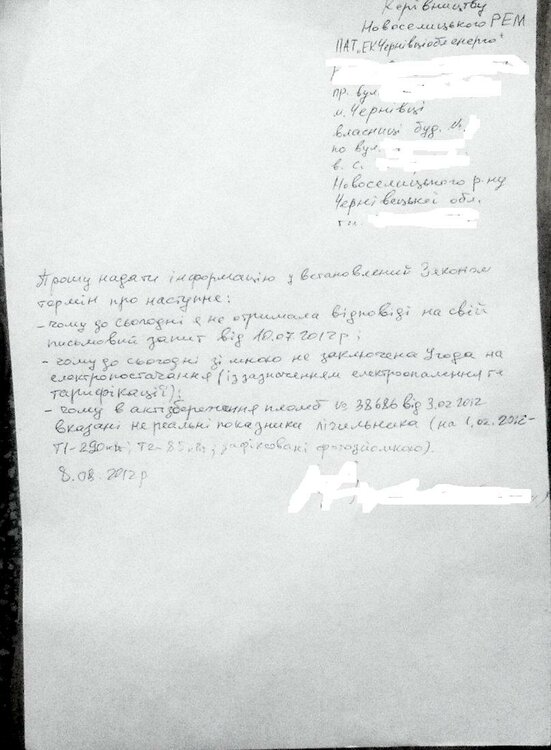 Керівництву
Новоселицького РЕМ
ПАТ „ЕК Чернівціобленерго"
пр. вул.
м. Чернівці
власниці буд. №
по вул.
в. с.
Новоселицького р-ну
Чернівецької обл.
Прошу надати інформацію у встановлений Законом
термін про наступне:
- чому до сьогодні я не отримала відповіді на свій
письмовий запит від 10.07.2012р;
- чому до сьогодні зі мною не заключена Угода на
електропостачання (із зазначенням електроопалення та
тарифікації);
- чому в акті збереження пломб № 38686 від 3.02.2012
вказані не реальні показники лічильника (на 1.02.2012-
Т1-290кВт; Т2-85кВт, зафіксовані фотозйомкою).
8.08.2012р